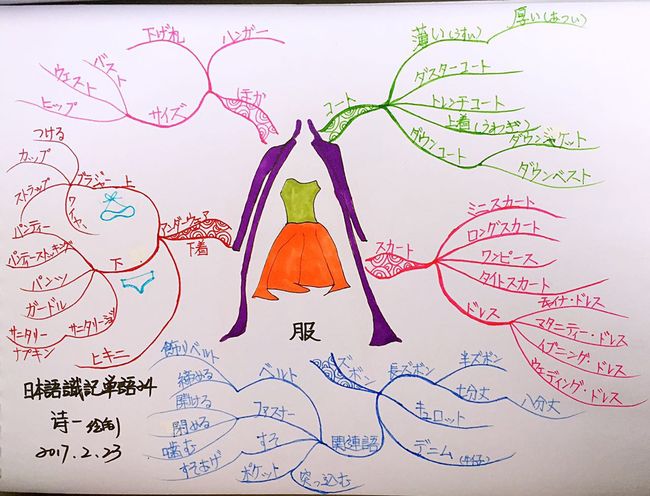 服
コート
薄い(うすい)
厚い(あつい)
ダスターコート
トレンチコート
上着(うわっぎ)
ダウンコート
ダウンジャケット
ダウンベスト
スカート
ミニスカート
ロングスカート
ワンピース
タイトスカート
ドレス
チャイナ・ドレス
マタニティー・ドレス
イブニング・ドレス
ウェディング・ドレス
ズボン
長ズボン
半ズボン
七分丈
八分丈
キュロット
デニム
関連語
ベルト
飾りベルト
締める
ファスナー
開ける
閉める
噛む
すそ
すそあげ
ポケット
突っ込む
アンダーウェア
下着
上
ブラジャー
つける
カップ
ストラップ
ワイヤー
下
パンティー
パンティーストッキング
パンツ
ガードル
サニタリーショーツ
サニタリー
ナプキン
ビキニ
ほか
ハンガー
下げ札
サイズ
バスト
ウェスト
ヒップ
日本語識記単語24
诗一绘制
2017.2.23